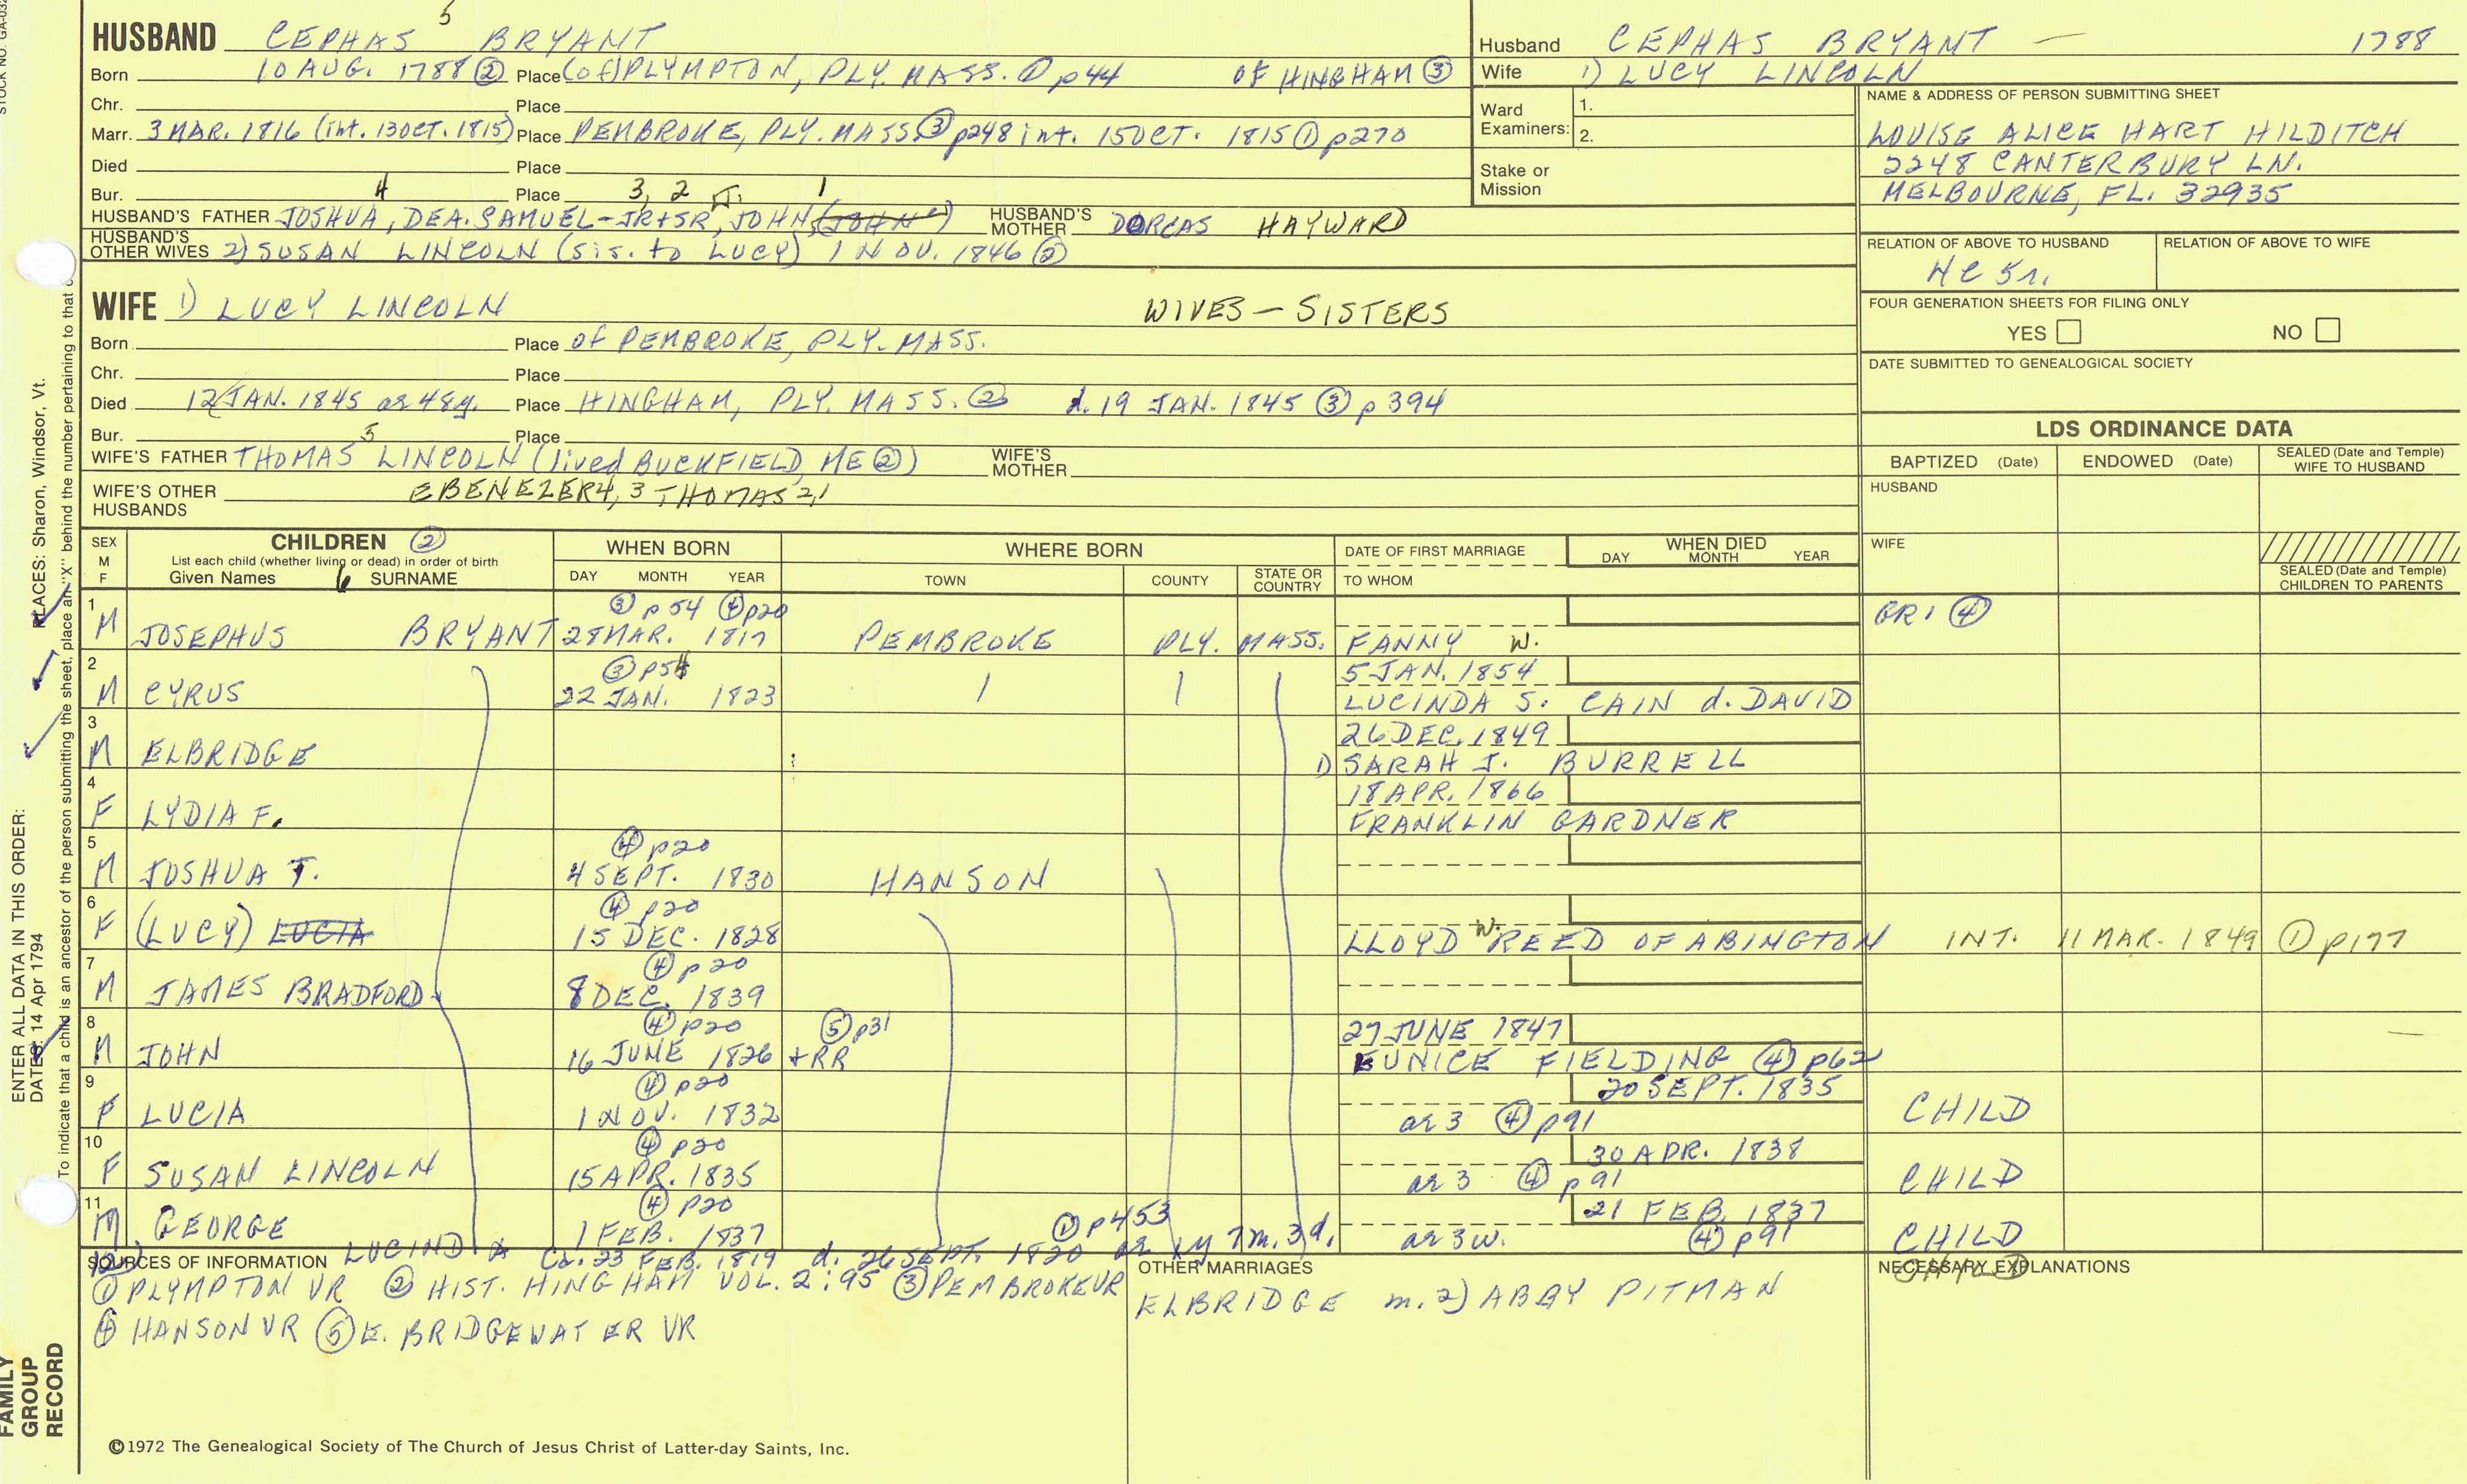 STOCK NO. GA-032
5
HUSBAND CEPHAS BRYANT
Born 10 AUG. 1788 ② Place (of) PLYMPTON, PLY. MASS. ① p44 OF HINGHAM ③
Chr. Place
Marr. 3 MAR. 1816 (int. 13 OCT. 1815) Place PEMBROKE, PLY. MASS. ③ p248 int. 15 OCT. 1815 ① p270
Died Place
Bur. Place
4 3, 2 1
HUSBAND'S FATHER JOSHUA, DEA. SAMUEL-JR+SR, JOHN, (JOHN) HUSBAND'S MOTHER DORCAS HAYWARD
HUSBAND'S OTHER WIVES 2) SUSAN LINCOLN (sis. to LUCY) 1 NOV. 1846 ②
WIFE 1) LUCY LINCOLN WIVES - SISTERS
Born Place of PEMBROKE, PLY. MASS.
Chr. Place
Died 12 JAN. 1845 ae 48y. Place HINGHAM, PLY. MASS. ② d. 19 JAN. 1845 ③ p 394
Bur. Place
5
WIFE'S FATHER THOMAS LINCOLN (lived BUCKFIELD, ME ②) WIFE'S MOTHER
WIFE'S OTHER HUSBANDS EBENEZER 4, 3 THOMAS 2, 1
Husband CEPHAS BRYANT — 1788
Wife 1) LUCY LINCOLN
Ward Examiners: 1.
2.
Stake or Mission
NAME & ADDRESS OF PERSON SUBMITTING SHEET
LOUISE ALICE HART HILDITCH
2248 CANTERBURY LN.
MELBOURNE, FL. 32935
RELATION OF ABOVE TO HUSBAND RELATION OF ABOVE TO WIFE
4C 5r.
FOUR GENERATION SHEETS FOR FILING ONLY
YES NO
DATE SUBMITTED TO GENEALOGICAL SOCIETY
LDS ORDINANCE DATA
BAPTIZED (Date) ENDOWED (Date) SEALED (Date and Temple) WIFE TO HUSBAND
HUSBAND
WIFE
SEALED (Date and Temple) CHILDREN TO PARENTS
SEX M F
CHILDREN ②
List each child (whether living or dead) in order of birth
Given Names 6 SURNAME
WHEN BORN
DAY MONTH YEAR
WHERE BORN
TOWN COUNTY STATE OR COUNTRY
DATE OF FIRST MARRIAGE
TO WHOM
WHEN DIED
DAY MONTH YEAR
③ p 54 ④ p20
1 M JOSEPHUS BRYANT 28 MAR. 1817 PEMBROKE PLY. MASS. FANNY W. GR1 ④
③ p54 5 JAN. 1854
2 M CYRUS 22 JAN. 1823 LUCINDA S. CAIN d. DAVID
26 DEC. 1849
3 M ELBRIDGE 1) SARAH J. BURRELL
18 APR. 1866
4 F LYDIA F. FRANKLIN GARDNER
④ p20
5 M JOSHUA T. 4 SEPT. 1830 HANSON
④ p20
6 F (LUCY) LUCIA 15 DEC. 1828 LLOYD W. REED OF ABINGTON INT. 11 MAR. 1849 ① p177
④ p20
7 M JAMES BRADFORD 8 DEC. 1839
④ p20 ⑤ p31 27 JUNE 1847
8 M JOHN 16 JUNE 1826 +RR EUNICE FIELDING ④ p62
④ p20 20 SEPT. 1835
9 F LUCIA 1 NOV. 1832 ae 3 ④ p91 CHILD
④ p20 30 APR. 1838
10 F SUSAN LINCOLN 15 APR. 1835 ae 3 ④ p91 CHILD
④ p20 21 FEB. 1837
11 M GEORGE 1 FEB. 1837 ae 3w. ④ p91 CHILD
① p453
12) LUCINDA Ca. 23 FEB. 1819 d. 26 SEPT. 1820 ae 1y 7m. 3d. CHILD
SOURCES OF INFORMATION
① PLYMPTON VR ② HIST. HINGHAM VOL. 2:95 ③ PEMBROKE VR
④ HANSON VR ⑤ E. BRIDGEWATER VR
OTHER MARRIAGES
ELBRIDGE m. 2) ABBY PITMAN
NECESSARY EXPLANATIONS
©1972 The Genealogical Society of The Church of Jesus Christ of Latter-day Saints, Inc.
ENTER ALL DATA IN THIS ORDER:
DATES: 14 Apr 1794
PLACES: Sharon, Windsor, Vt.
To indicate that a child is an ancestor of the person submitting the sheet, place an "X" behind the number pertaining to that
FAMILY GROUP RECORD